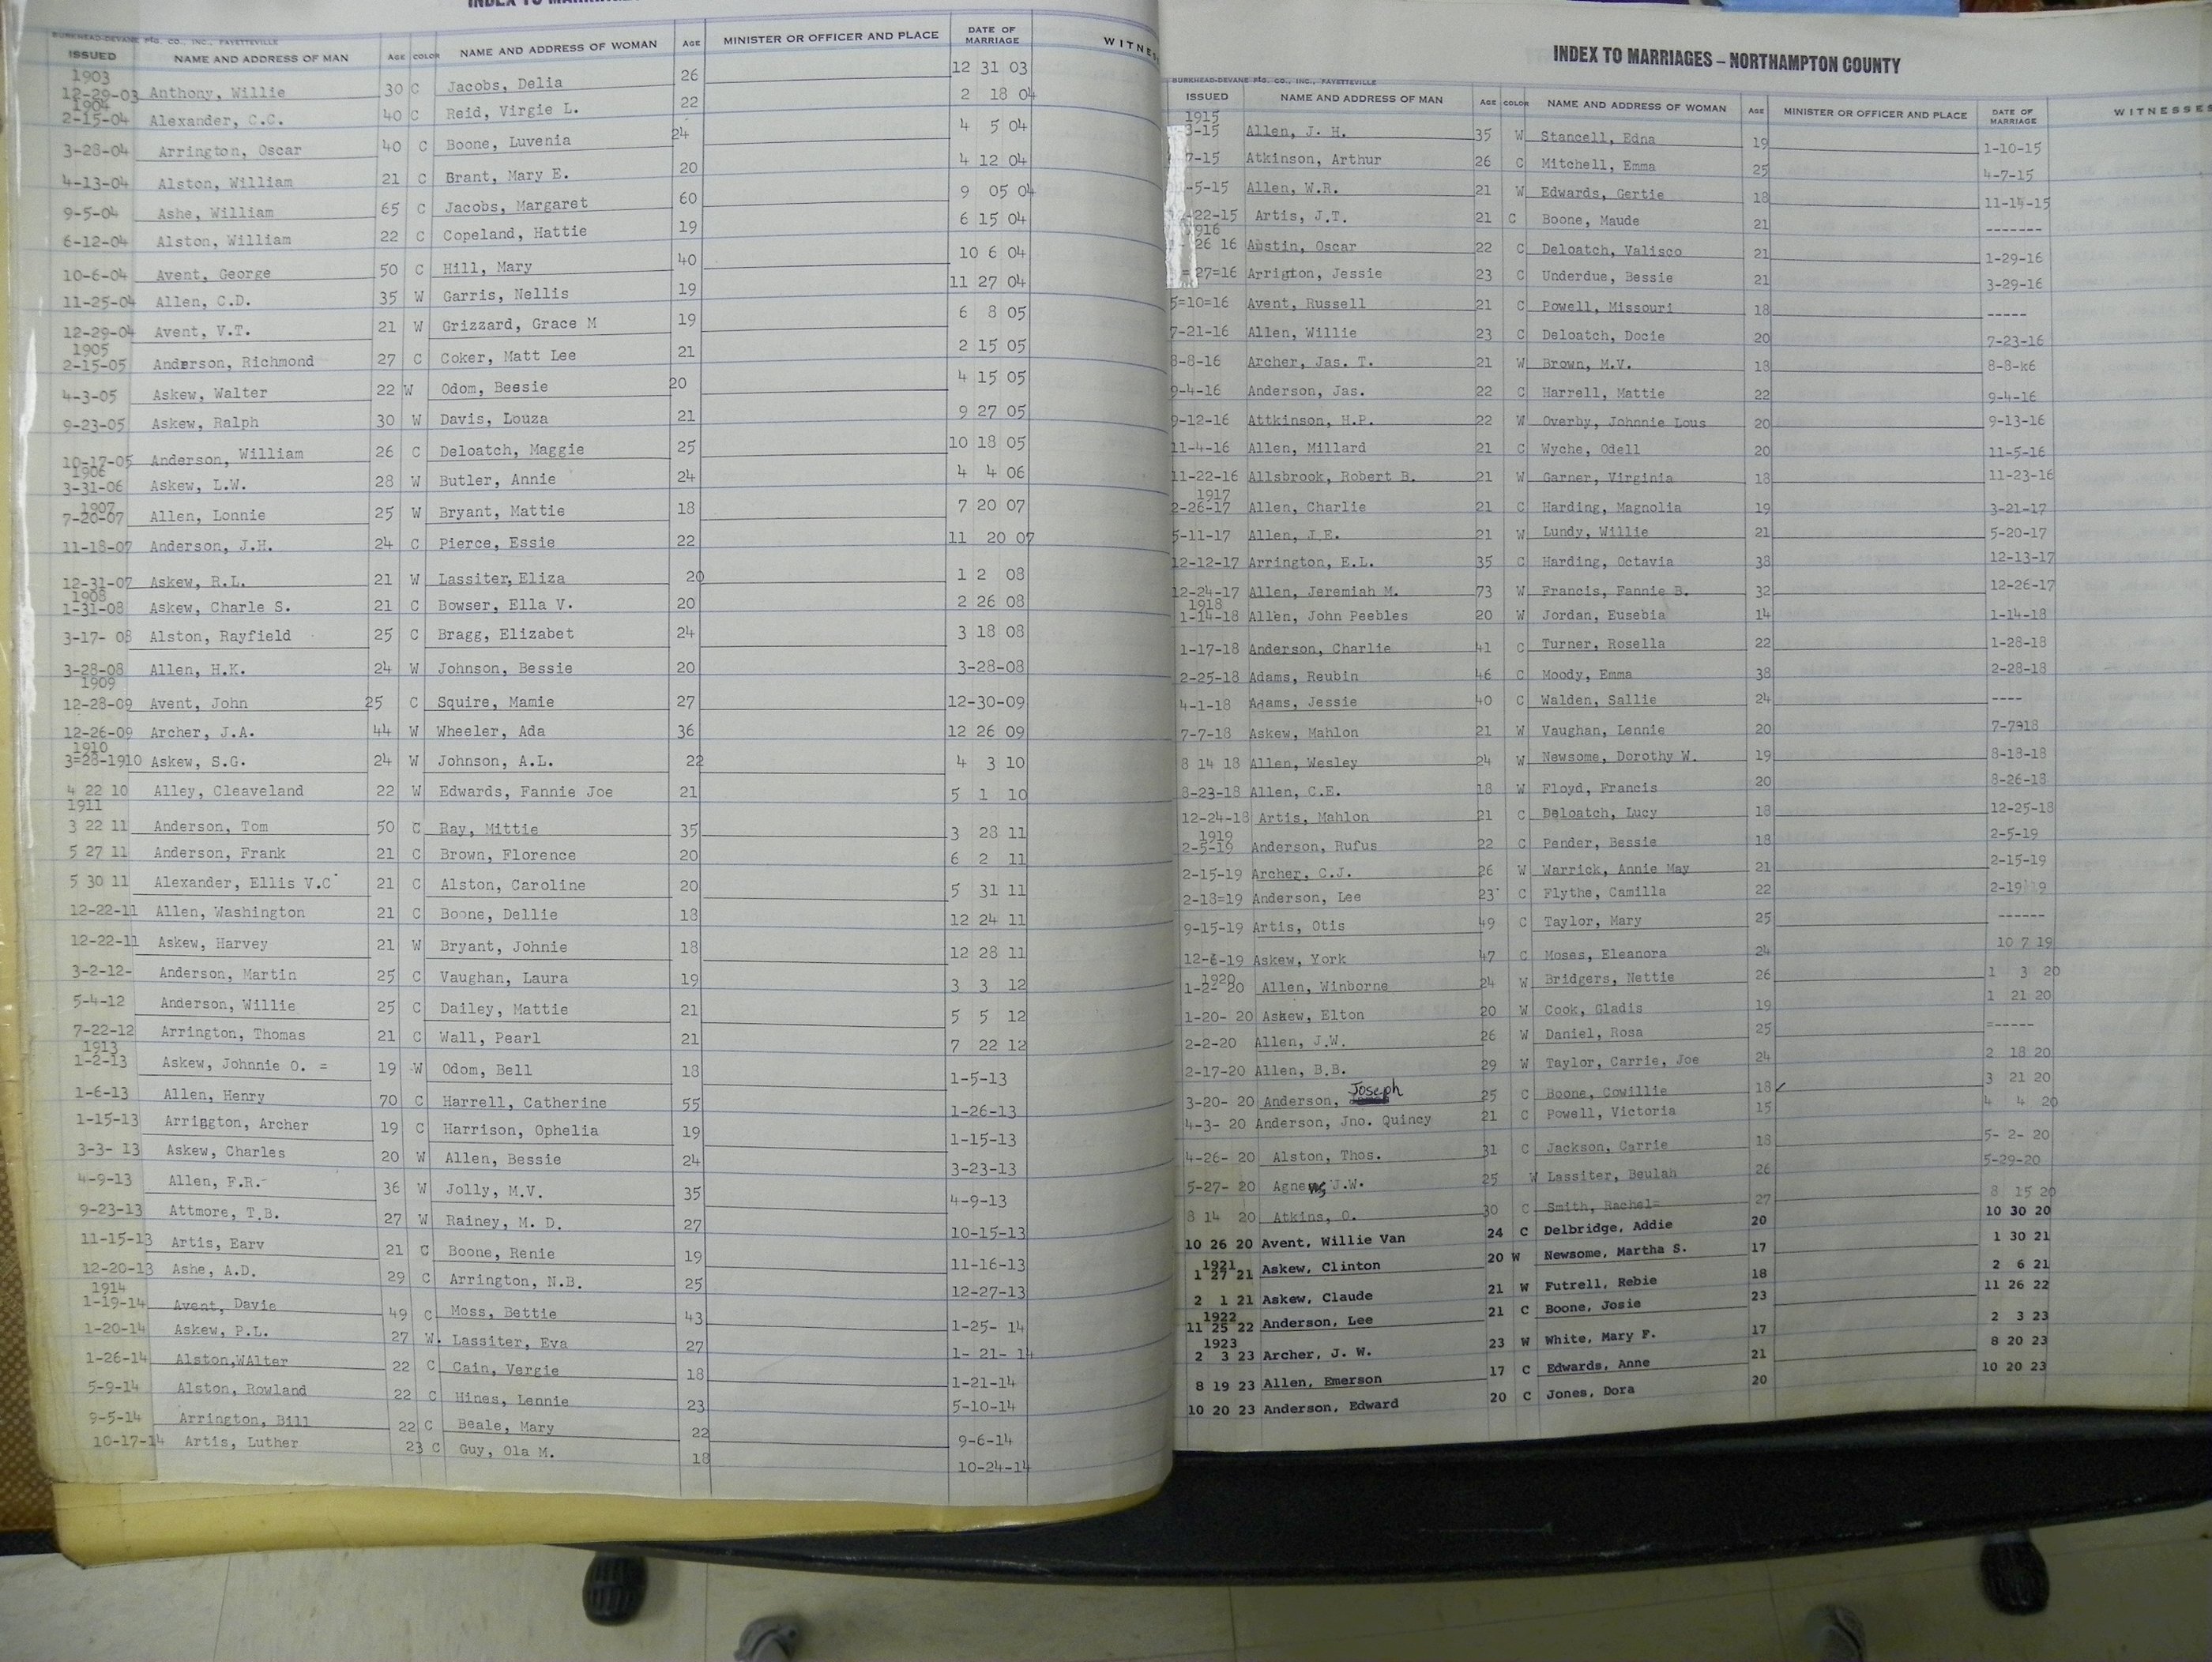 INDEX TO
BURKHEAD-DEVANE PTG. CO., INC., FAYETTEVILLE
ISSUED NAME AND ADDRESS OF MAN AGE COLOR NAME AND ADDRESS OF WOMAN AGE MINISTER OR OFFICER AND PLACE DATE OF MARRIAGE
1903
12-29-03 Anthony, Willie 30 C Jacobs, Delia 26 12 31 03
1904
2-15-04 Alexander, C.C. 40 C Reid, Virgie L. 22 2 18 04
3-28-04 Arrington, Oscar 40 C Boone, Luvenia 24 4 5 04
4-13-04 Alston, William 21 C Brant, Mary E. 20 4 12 04
9-5-04 Ashe, William 65 C Jacobs, Margaret 60 9 05 04
6-12-04 Alston, William 22 C Copeland, Hattie 19 6 15 04
10-6-04 Avent, George 50 C Hill, Mary 40 10 6 04
11-25-04 Allen, C.D. 35 W Garris, Nellis 19 11 27 04
12-29-04 Avent, V.T. 21 W Grizzard, Grace M 19 6 8 05
1905
2-15-05 Anderson, Richmond 27 C Coker, Matt Lee 21 2 15 05
4-3-05 Askew, Walter 22 W Odom, Bessie 20 4 15 05
9-23-05 Askew, Ralph 30 W Davis, Louza 21 9 27 05
10-17-05 Anderson, William 26 C Deloatch, Maggie 25 10 18 05
1906
3-31-06 Askew, L.W. 28 W Butler, Annie 24 4 4 06
1907
7-20-07 Allen, Lonnie 25 W Bryant, Mattie 18 7 20 07
11-18-07 Anderson, J.H. 24 C Pierce, Essie 22 11 20 07
12-31-07 Askew, R.L. 21 W Lassiter, Eliza 20 1 2 08
1908
1-31-08 Askew, Charle S. 21 C Bowser, Ella V. 20 2 26 08
3-17- 08 Alston, Rayfield 25 C Bragg, Elizabet 24 3 18 08
3-28-08 Allen, H.K. 24 W Johnson, Bessie 20 3-28-08
1909
12-28-09 Avent, John 25 C Squire, Mamie 27 12-30-09
12-26-09 Archer, J.A. 44 W Wheeler, Ada 36 12 26 09
1910
3=28-1910 Askew, S.G. 24 W Johnson, A.L. 22 4 3 10
4 22 10 Alley, Cleaveland 22 W Edwards, Fannie Joe 21 5 1 10
1911
3 22 11 Anderson, Tom 50 C Ray, Mittie 35 3 28 11
5 27 11 Anderson, Frank 21 C Brown, Florence 20 6 2 11
5 30 11 Alexander, Ellis V.C 21 C Alston, Caroline 20 5 31 11
12-22-11 Allen, Washington 21 C Boone, Dellie 18 12 24 11
12-22-11 Askew, Harvey 21 W Bryant, Johnie 18 12 28 11
3-2-12- Anderson, Martin 25 C Vaughan, Laura 19 3 3 12
5-4-12 Anderson, Willie 25 C Dailey, Mattie 21 5 5 12
7-22-12 Arrington, Thomas 21 C Wall, Pearl 21 7 22 12
1913
1-2-13 Askew, Johnnie O. = 19 W Odom, Bell 18 1-5-13
1-6-13 Allen, Henry 70 C Harrell, Catherine 55 1-26-13
1-15-13 Arrington, Archer 19 C Harrison, Ophelia 19 1-15-13
3-3- 13 Askew, Charles 20 W Allen, Bessie 24 3-23-13
4-9-13 Allen, F.R. 36 W Jolly, M.V. 35 4-9-13
9-23-13 Attmore, T.B. 27 W Rainey, M. D. 27 10-15-13
11-15-13 Artis, Earv 21 C Boone, Renie 19 11-16-13
12-20-13 Ashe, A.D. 29 C Arrington, N.B. 25 12-27-13
1914
1-19-14 Avent, Davie 49 C Moss, Bettie 43 1-25- 14
1-20-14 Askew, P.L. 27 W. Lassiter, Eva 27 1- 21- 14
1-26-14 Alston,WAlter 22 C Cain, Vergie 18 1-21-14
5-9-14 Alston, Rowland 22 C Hines, Lennie 23 5-10-14
9-5-14 Arrington, Bill 22 C Beale, Mary 22 9-6-14
10-17-14 Artis, Luther 23 C Guy, Ola M. 18 10-24-14
INDEX TO MARRIAGES – NORTHAMPTON COUNTY
BURKHEAD-DEVANE PTG. CO., INC., FAYETTEVILLE
ISSUED NAME AND ADDRESS OF MAN AGE COLOR NAME AND ADDRESS OF WOMAN AGE MINISTER OR OFFICER AND PLACE DATE OF MARRIAGE WITNESSES
1915
3-15 Allen, J. H. 35 W Stancell, Edna 19 1-10-15
7-15 Atkinson, Arthur 26 C Mitchell, Emma 25 4-7-15
-5-15 Allen, W.R. 21 W Edwards, Gertie 18 11-14-15
-22-15 Artis, J.T. 21 C Boone, Maude 21 -------
1916
26 16 Austin, Oscar 22 C Deloatch, Valisco 21 1-29-16
=27=16 Arrigton, Jessie 23 C Underdue, Bessie 21 3-29-16
5=10=16 Avent, Russell 21 C Powell, Missouri 18 -----
7-21-16 Allen, Willie 23 C Deloatch, Docie 20 7-23-16
8-8-16 Archer, Jas. T. 21 W Brown, M.V. 18 8-8-k6
9-4-16 Anderson, Jas. 22 C Harrell, Mattie 22 9-4-16
9-12-16 Attkinson, H.P. 22 W Overby, Johnnie Lous 20 9-13-16
11-4-16 Allen, Millard 21 C Wyche, Odell 20 11-5-16
11-22-16 Allsbrook, Robert B. 21 W Garner, Virginia 18 11-23-16
1917
2-26-17 Allen, Charlie 21 C Harding, Magnolia 19 3-21-17
5-11-17 Allen, J.E. 21 W Lundy, Willie 21 5-20-17
12-12-17 Arrington, E.L. 35 C Harding, Octavia 38 12-13-17
12-24-17 Allen, Jeremiah M. 73 W Francis, Fannie B. 32 12-26-17
1918
1-14-18 Allen, John Peebles 20 W Jordan, Eusebia 14 1-14-18
1-17-18 Anderson, Charlie 41 C Turner, Rosella 22 1-28-18
2-25-18 Adams, Reubin 46 C Moody, Emma 38 2-28-18
4-1-18 Adams, Jessie 40 C Walden, Sallie 24 ----
7-7-18 Askew, Mahlon 21 W Vaughan, Lennie 20 7-7918
8 14 18 Allen, Wesley 24 W Newsome, Dorothy W. 19 8-18-18
8-23-18 Allen, C.E. 18 W Floyd, Francis 20 8-26-18
12-24-18 Artis, Mahlon 21 C Deloatch, Lucy 18 12-25-18
1919
2-5-19 Anderson, Rufus 22 C Pender, Bessie 18 2-5-19
2-15-19 Archer, C.J. 26 W Warrick, Annie May 21 2-15-19
2-18=19 Anderson, Lee 23 C Flythe, Camilla 22 2-19 19
9-15-19 Artis, Otis 49 C Taylor, Mary 25 ------
12-6-19 Askew, York 47 C Moses, Eleanora 24 10 7 19
1920
1-2- 20 Allen, Winborne 24 W Bridgers, Nettie 26 1 3 20
1-20- 20 Askew, Elton 20 W Cook, Gladis 19 1 21 20
2-2-20 Allen, J.W. 26 W Daniel, Rosa 25 =-----
2-17-20 Allen, B.B. 29 W Taylor, Carrie, Joe 24 2 18 20
3-20- 20 Anderson, Joseph 25 C Boone, Cowillie 18✓ 3 21 20
4-3- 20 Anderson, Jno. Quincy 21 C Powell, Victoria 15 4 4 20
4-26- 20 Alston, Thos. 31 C Jackson, Carrie 18 5- 2- 20
5-27- 20 Agnew, J.W. 25 W Lassiter, Beulah 26 5-29-20
8 14 20 Atkins, O. 30 C Smith, Rachel= 27 8 15 20
10 26 20 Avent, Willie Van 24 C Delbridge, Addie 20 10 30 20
1921
1 27 21 Askew, Clinton 20 W Newsome, Martha S. 17 1 30 21
2 1 21 Askew, Claude 21 W Futrell, Rebie 18 2 6 21
1922
11 25 22 Anderson, Lee 21 C Boone, Josie 23 11 26 22
1923
2 3 23 Archer, J. W. 23 W White, Mary F. 17 2 3 23
8 19 23 Allen, Emerson 17 C Edwards, Anne 21 8 20 23
10 20 23 Anderson, Edward 20 C Jones, Dora 20 10 20 23